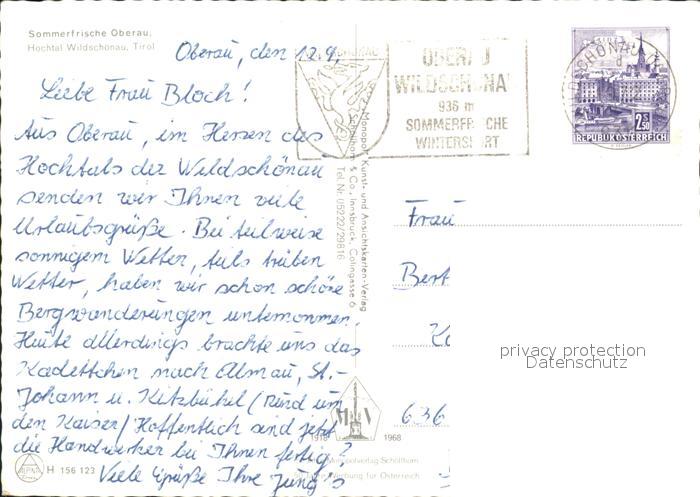 Sommerfrische Oberau,
Hochtal Wildschönau, Tirol
Oberau, den 12.9.
Liebe Frau Bloch!
Aus Oberau, im Herzen des
Hochtals der Wildschönau
senden wir Ihnen viele
Urlaubsgrüße. Bei teilweise
sonnigem Wetter, teils trüben
Wetter, haben wir schon schöne
Bergwanderungen unternommen.
Heute allerdings brachte uns das
Kadettchen nach Elmau, St.-
Johann u. Kitzbühel (Rund um
den Kaiser) Hoffentlich sind jetzt
die Handwerker bei Ihnen fertig?
Viele Grüße Ihre Jung's
H 156 123
Monopol, Kunst- und Ansichtskarten-Verlag
& Co., Innsbruck, Colingasse 6
Tel. Nr. 05222/29816
1918 1968
OBERAU
WILDSCHÖNAU
936 m
SOMMERFRISCHE
WINTERSPORT
2.50
REPUBLIK ÖSTERREICH
Frau
Bert
636
privacy protection
Datenschutz